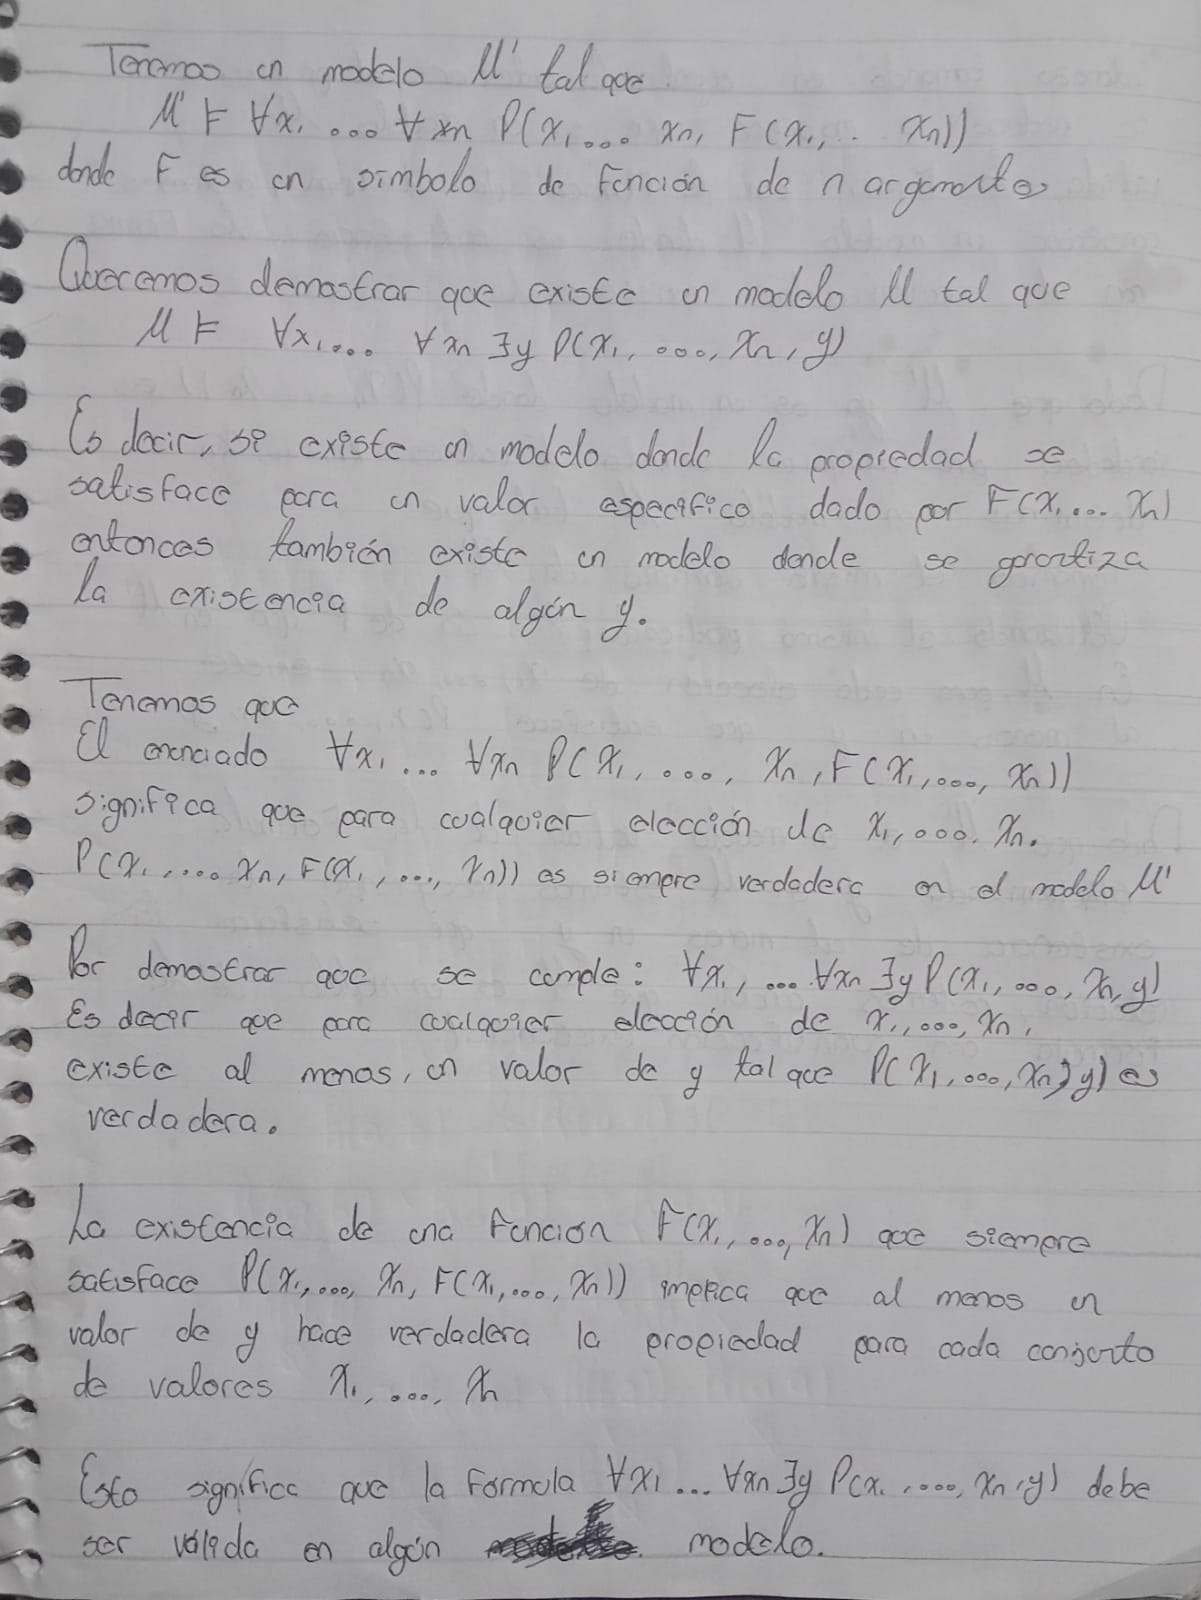 Tenemos un modelo M' tal que
M' ⊨ ∀x₁ ... ∀xn P(x₁ ... xn, F(x₁, .. xn))
donde F es un símbolo de función de n argumentos
Queremos demostrar que existe un modelo M tal que
M ⊨ ∀x₁ ... ∀xn ∃y P(x₁, ..., xn, y)
Es decir, si existe un modelo donde la propiedad se
satisface para un valor especifico dado por F(x₁ ... xn)
entonces también existe un modelo donde se garantiza
la existencia de algún y.
Tenemos que
El enunciado ∀x₁ ... ∀xn P(x₁, ..., xn, F(x₁, ..., xn))
significa que para cualquier elección de x₁, ... xn.
P(x₁, ... xn, F(x₁, ..., xn)) es siempre verdadera en el modelo M'
Por demostrar que se cumple: ∀x₁, ... ∀xn ∃y P(x₁, ..., xn, y)
Es decir que para cualquier elección de x₁, ..., xn,
existe al menos, un valor de y tal que P(x₁, ..., xn, y) es
verdadera.
La existencia de una función F(x₁, ..., xn) que siempre
satisface P(x₁, ..., xn, F(x₁, ..., xn)) implica que al menos un
valor de y hace verdadera la propiedad para cada conjunto
de valores x₁, ..., xn
Esto significa que la formula ∀x₁ ... ∀xn ∃y P(x₁, ..., xn, y) debe
ser válida en algún modelo.